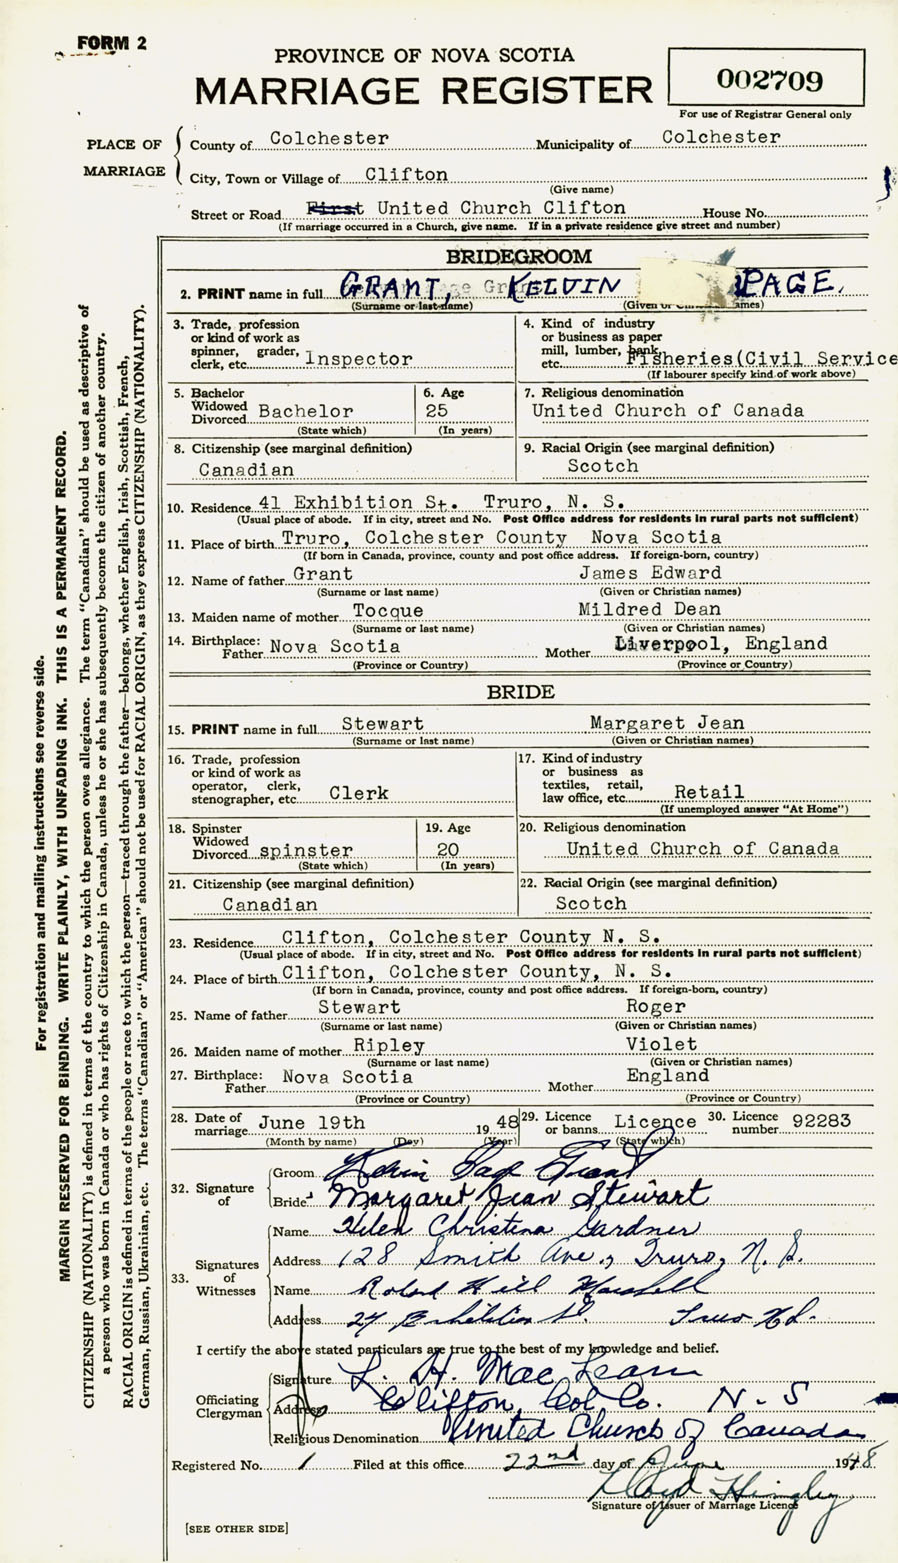 FORM 2
PROVINCE OF NOVA SCOTIA
MARRIAGE REGISTER
002709
For use of Registrar General only
PLACE OF MARRIAGE
County of Colchester Municipality of Colchester
City, Town or Village of Clifton
(Give name)
Street or Road First United Church Clifton House No.
(If marriage occurred in a Church, give name. If in a private residence give street and number)
BRIDEGROOM
2. PRINT name in full GRANT, KELVIN PAGE.
(Surname or last name) (Given or names)
3. Trade, profession or kind of work as spinner, grader, clerk, etc. Inspector
4. Kind of industry or business as paper mill, lumber, bank, etc. Fisheries(Civil Service
(If labourer specify kind of work above)
5. Bachelor Widowed Divorced Bachelor
(State which)
6. Age 25
(In years)
7. Religious denomination
United Church of Canada
8. Citizenship (see marginal definition)
Canadian
9. Racial Origin (see marginal definition)
Scotch
10. Residence 41 Exhibition St. Truro, N. S.
(Usual place of abode. If in city, street and No. Post Office address for residents in rural parts not sufficient)
11. Place of birth Truro, Colchester County Nova Scotia
(If born in Canada, province, county and post office address. If foreign-born, country)
12. Name of father Grant James Edward
(Surname or last name) (Given or Christian names)
13. Maiden name of mother Tocque Mildred Dean
(Surname or last name) (Given or Christian names)
14. Birthplace: Father Nova Scotia Mother Liverpool, England
(Province or Country) (Province or Country)
BRIDE
15. PRINT name in full Stewart Margaret Jean
(Surname or last name) (Given or Christian names)
16. Trade, profession or kind of work as operator, clerk, stenographer, etc. Clerk
17. Kind of industry or business as textiles, retail, law office, etc. Retail
(If unemployed answer "At Home")
18. Spinster Widowed Divorced spinster
(State which)
19. Age 20
(In years)
20. Religious denomination
United Church of Canada
21. Citizenship (see marginal definition)
Canadian
22. Racial Origin (see marginal definition)
Scotch
23. Residence Clifton, Colchester County N. S.
(Usual place of abode. If in city, street and No. Post Office address for residents in rural parts not sufficient)
24. Place of birth Clifton, Colchester County, N. S.
(If born in Canada, province, county and post office address. If foreign-born, country)
25. Name of father Stewart Roger
(Surname or last name) (Given or Christian names)
26. Maiden name of mother Ripley Violet
(Surname or last name) (Given or Christian names)
27. Birthplace: Father Nova Scotia Mother England
(Province or Country) (Province or Country)
28. Date of marriage June 19th 19 48
(Month by name) (Day) (Year)
29. Licence or banns Licence
(State which)
30. Licence number 92283
32. Signature of
Groom Kelvin Page Grant
Bride Margaret Jean Stewart
33. Signatures of Witnesses
Name Helen Christena Gardner
Address 128 Smith Ave., Truro, N. S.
Name Roland Hill Marshall
Address 24 Exhibition St. Truro N.S.
I certify the above stated particulars are true to the best of my knowledge and belief.
Officiating Clergyman
Signature L. H. MacLean
Address Clifton, Col Co. N. S
Religious Denomination United Church of Canada
Registered No. 1 Filed at this office 22nd day of June 1948
Lloyd Hingley
Signature of Issuer of Marriage Licence
[SEE OTHER SIDE]
For registration and mailing instructions see reverse side.
MARGIN RESERVED FOR BINDING. WRITE PLAINLY, WITH UNFADING INK. THIS IS A PERMANENT RECORD.
CITIZENSHIP (NATIONALITY) is defined in terms of the country to which the person owes allegiance. The term "Canadian" should be used as descriptive of
a person who was born in Canada or who has rights of Citizenship in Canada, unless he or she has subsequently become the citizen of another country.
RACIAL ORIGIN is defined in terms of the people or race to which the person—traced through the father—belongs, whether English, Irish, Scottish, French,
German, Russian, Ukrainian, etc. The terms "Canadian" or "American" should not be used for RACIAL ORIGIN, as they express CITIZENSHIP (NATIONALITY).